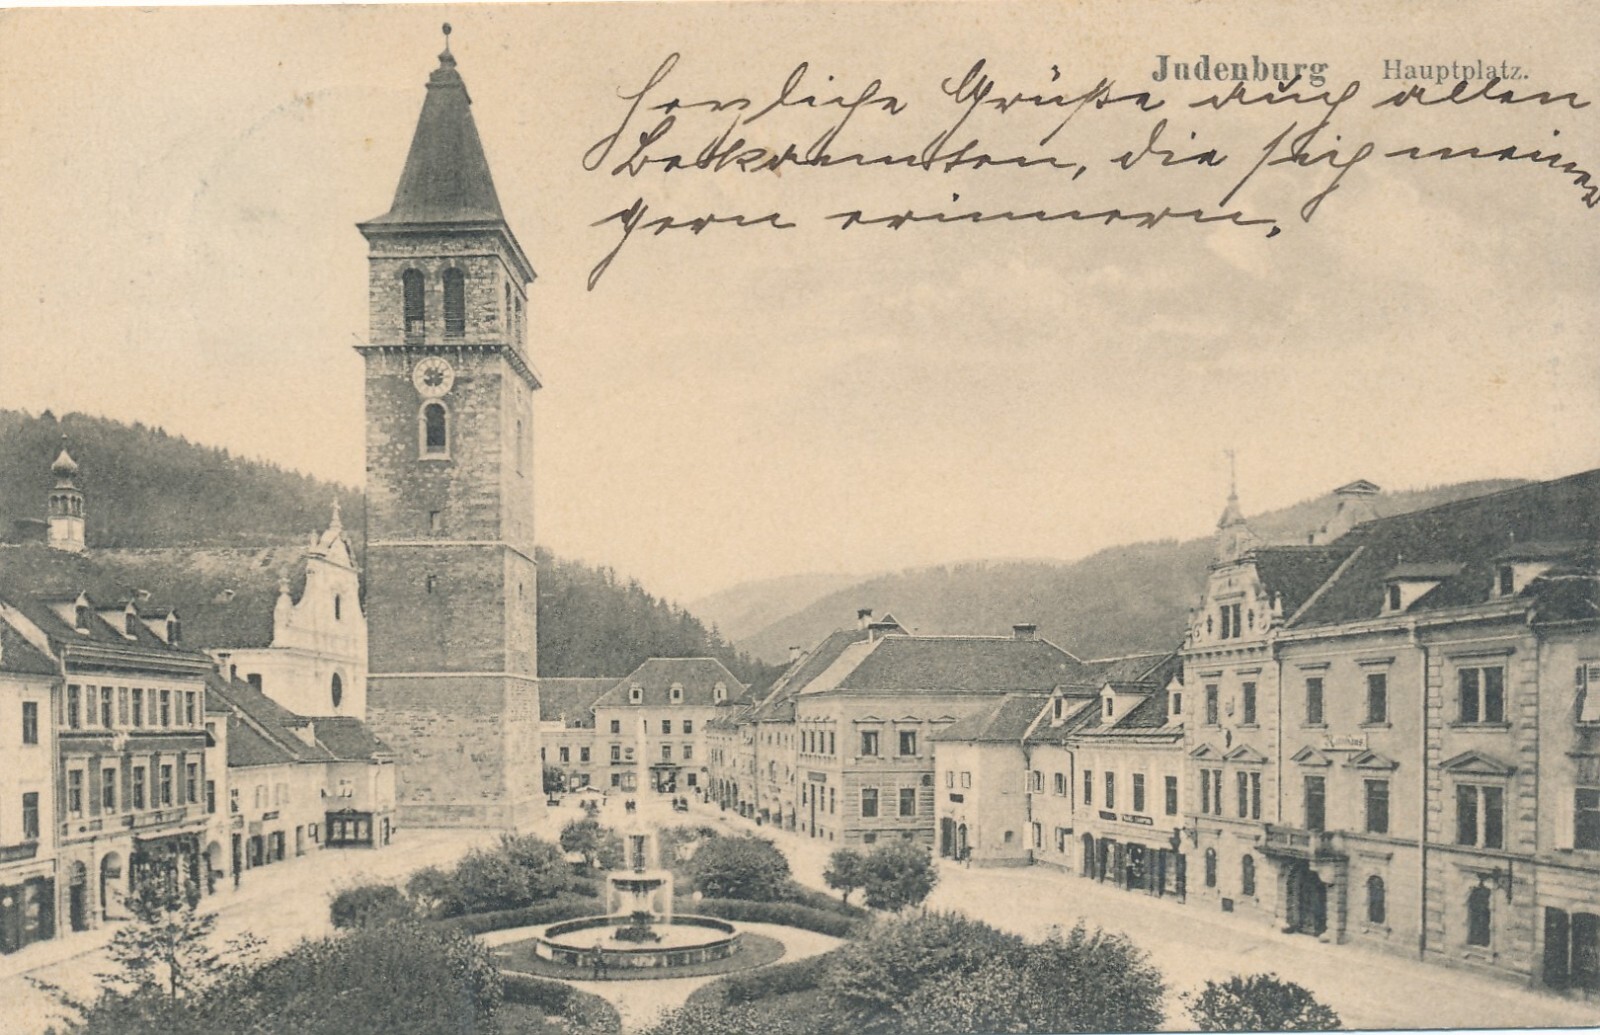 Judenburg Hauptplatz.
Herzliche Grüße auch allen
Bekannten, die sich meiner
gern erinnern.